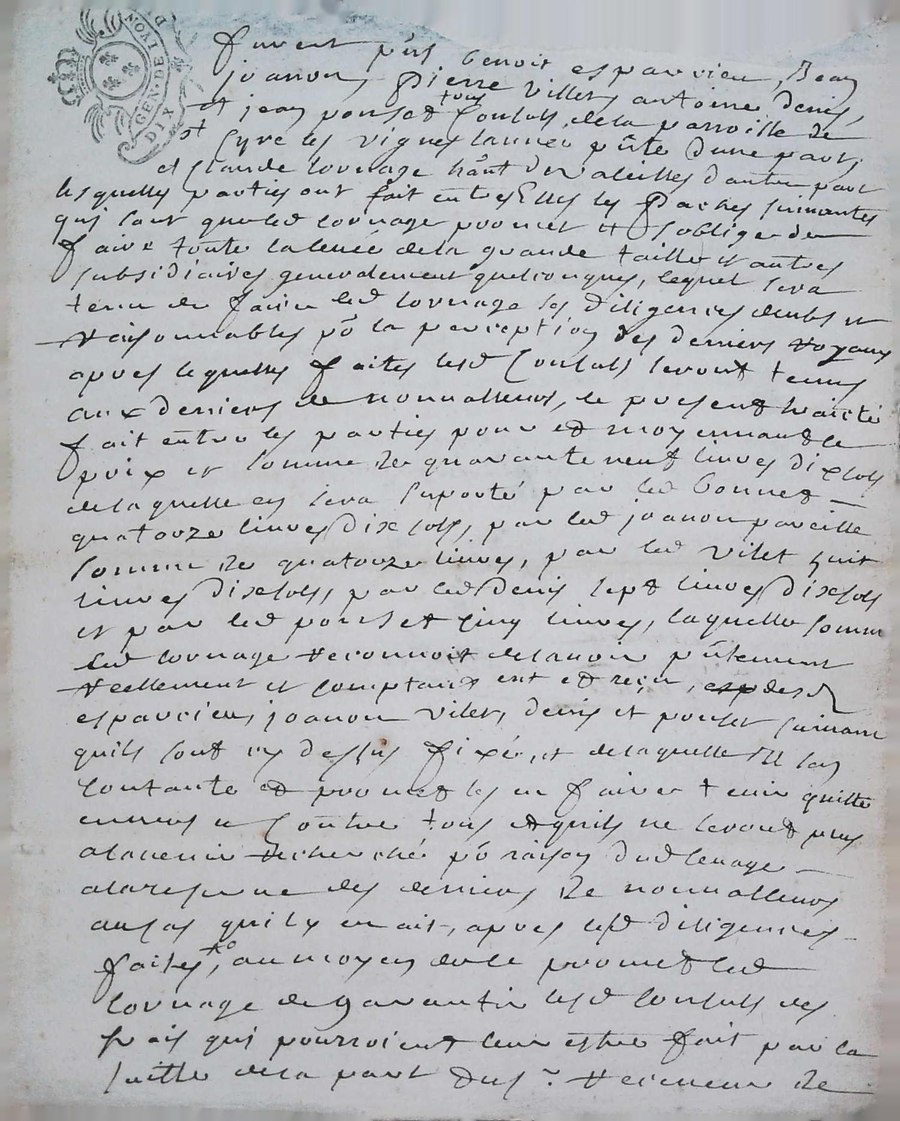 GEN. DE LYON
DIX
furent pñs Benoit esparvieu, Jean
joanon, Pierre Villet, antoine denis,
et jean ponset tous Consuls de la parroisse de
st Cyre les vignes lannée pñte dune part,
et Claude Cornage hãnt de valeilles dautre part
lesquelles parties ont fait entre Elles les Paches suivantes
qui sont que led Cornage promet et soblige de
faire toute la levée de la grande taille et autres
subsidiaires generalement quelconques, lequel sera
tenu de faire led Cornage les diligences deubs et
raisonnables põ la perception des deniers royaux
apres lequelles faites lesd Consuls seront tenus
aux deniers de nonvalleurs, le present traicté
fait entre les parties pour et moyennant le
prix et somme de quarante neuf livres dix sols
de laquelle en sera suporté par led Bonnet
quatorze livres dix sols, par led joanon pareille
somme de quatorze livres, par led Vilet huit
livres dix sols, par led Denis sept livres dix sols
et par led ponset cinq livres, laquelle somme
led Cornage reconnoit de lavoir pñtement
reellement et comptant eut et reçu, desd
esparvieu, joanon Vilet, denis et ponset suivant
quils sont cy dessus fixé, et de laquelle Il san
Contante et promet les en faire tenir quitte
envers et Contre tous et quils ne seront plus
a lavenir recherché põ raison dud levage
a la reserve des deniers de nonvalleurs
au cas quil y en ait, apres lesd diligences
faites, au moyen de ce promet led
Cornage de garantir lesd Consuls des
frais qui pourroient leur estre fait par la
suitte de la part du sr receveur de